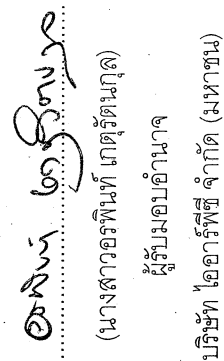 (นางสาวอรพินท์ เกตุรัตนกุล)
ผู้รับมอบอำนาจ
บริษัท ไออาร์พีซี จำกัด (มหาชน)